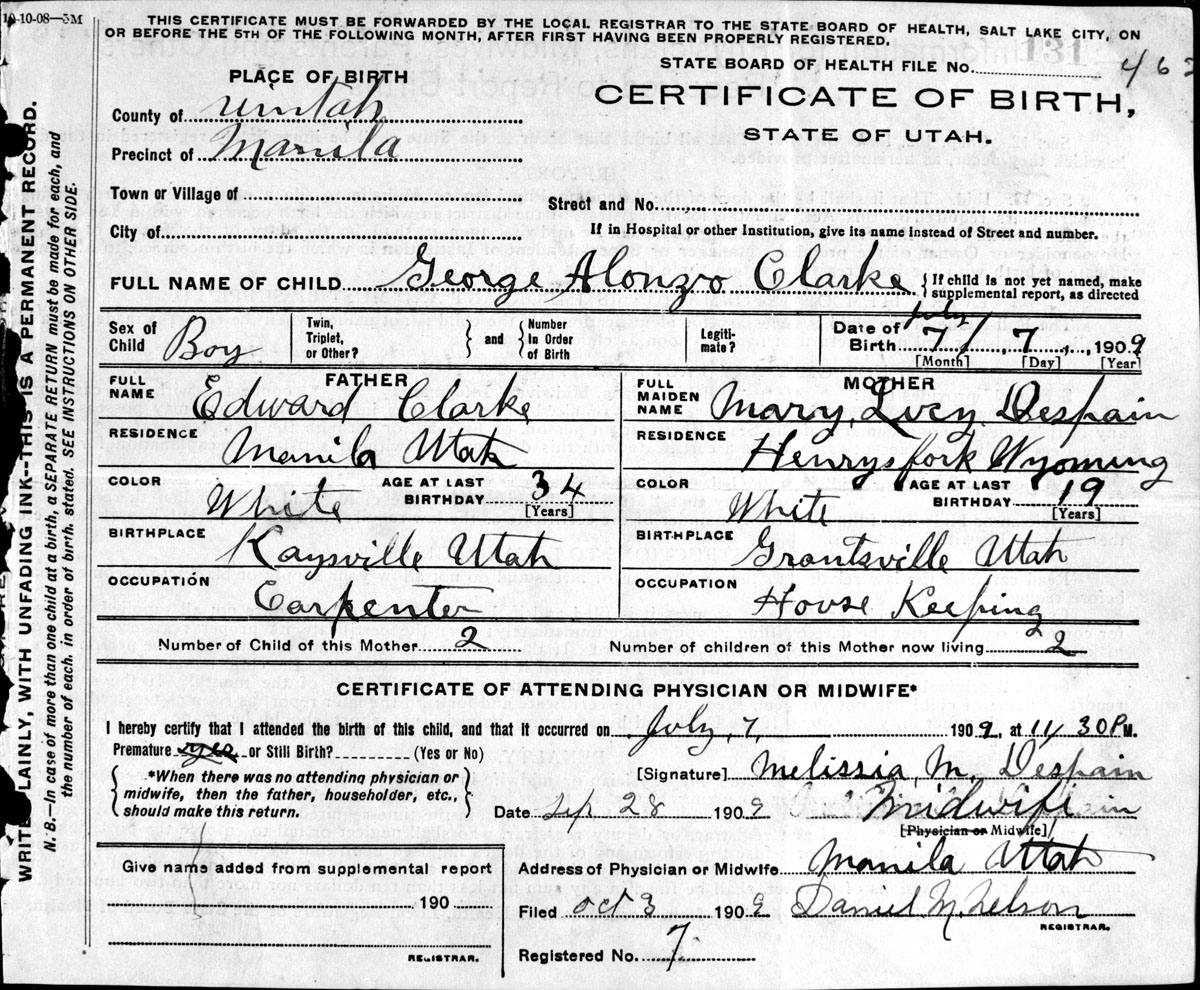 10-10-08—5M
THIS CERTIFICATE MUST BE FORWARDED BY THE LOCAL REGISTRAR TO THE STATE BOARD OF HEALTH, SALT LAKE CITY, ON
OR BEFORE THE 5TH OF THE FOLLOWING MONTH, AFTER FIRST HAVING BEEN PROPERLY REGISTERED.
STATE BOARD OF HEALTH FILE No. 131 462
PLACE OF BIRTH
CERTIFICATE OF BIRTH,
STATE OF UTAH.
County of Uintah
Precinct of Manila
Town or Village of
Street and No.
City of
If in Hospital or other Institution, give its name instead of Street and number.
FULL NAME OF CHILD George Alonzo Clarke { If child is not yet named, make supplemental report, as directed
Sex of Child Boy
Twin, Triplet, or Other? } and { Number in Order of Birth
Legiti-mate?
Date of Birth July 7, 7, 1909
[Month] [Day] [Year]
FATHER
FULL NAME Edward Clarke
RESIDENCE Manila Utah
COLOR White AGE AT LAST BIRTHDAY 34 [Years]
BIRTHPLACE Kaysville Utah
OCCUPATION Carpenter
MOTHER
FULL MAIDEN NAME Mary, Lucy, Despain
RESIDENCE Henrysfork Wyoming
COLOR White AGE AT LAST BIRTHDAY 19 [Years]
BIRTHPLACE Grantsville Utah
OCCUPATION House Keeping
Number of Child of this Mother 2 Number of children of this Mother now living 2 2
CERTIFICATE OF ATTENDING PHYSICIAN OR MIDWIFE*
I hereby certify that I attended the birth of this child, and that it occurred on July, 7, 1909, at 11 30 P M.
Premature yes or Still Birth? (Yes or No)
{ *When there was no attending physician or midwife, then the father, householder, etc., should make this return. }
[Signature] Melissia, M, Despain
Date Sep. 28 1909 midwife
[Physician or Midwife]
Give name added from supplemental report
190
REGISTRAR.
Address of Physician or Midwife Manila Utah
Filed Oct 3 1909 Daniel M. Nelson
REGISTRAR.
Registered No. 7.
WRITE PLAINLY, WITH UNFADING INK--THIS IS A PERMANENT RECORD.
N. B.—In case of more than one child at a birth, a SEPARATE RETURN must be made for each, and
the number of each, in order of birth, stated. SEE INSTRUCTIONS ON OTHER SIDE.